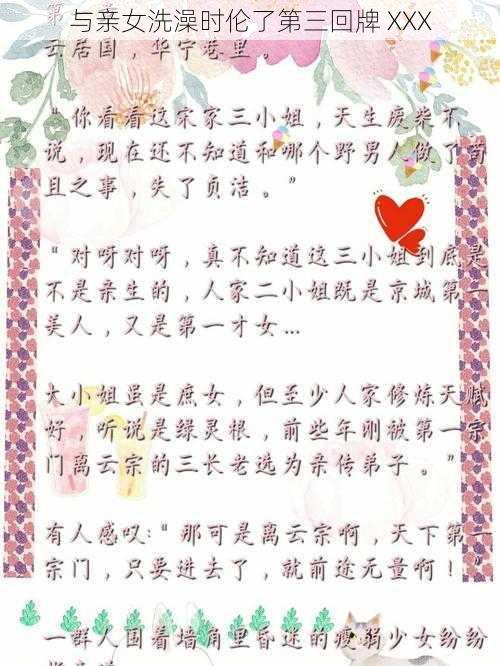 与亲女洗澡时伦了第三回牌 XXX
云居国，华宁巷里。
“你看看这宋家三小姐，天生废柴不
说，现在还不知道和哪个野男人做了苟
且之事，失了贞洁。”
“对呀对呀，真不知道这三小姐到底是
不是亲生的，人家二小姐既是京城第一
美人，又是第一才女...
大小姐虽是庶女，但至少人家修炼天赋
好，听说是绿灵根，前些年刚被第一宗
门离云宗的三长老选为亲传弟子。”
有人感叹:“那可是离云宗啊，天下第一
宗门，只要进去了，就前途无量啊！”
一群人围着墙角里昏迷的瘦弱少女纷纷